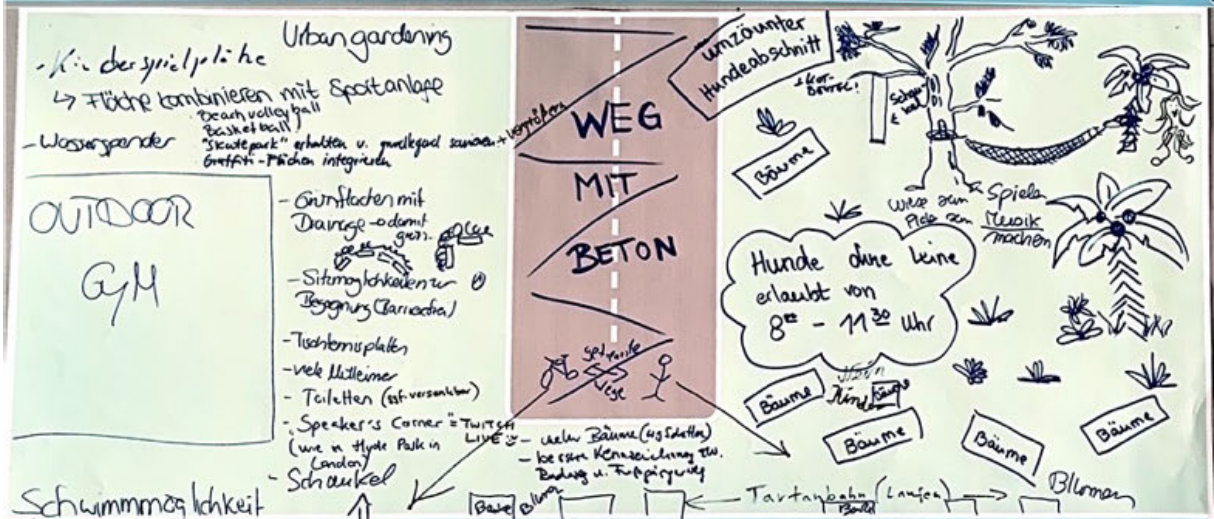 Urban gardening
- Kinderspielplätze
↳ Fläche kombinieren mit Sportanlage
Beachvolleyball
Basketball
- Wasserspender
"Skatepark" erhalten u. grundlegend sanieren + vergrößern
Graffiti-Flächen integrieren
OUTDOOR
GYM
- Grünflächen mit
Drainage → damit
- Sitzmöglichkeiten zur
Begegnung (Barrierefrei)
- Tischtennisplatten
- viele Mülleimer
- Toiletten (ggf. versenkbar)
- Speaker's Corner = TWITCH
LIVE
(wie in Hyde Park in
London)
- Schaukel
Schwimmmöglichkeit
WEG
MIT
BETON
getrennte
Wege
- mehr Bäume (wg Schatten)
- bessere Kennzeichnung zw.
Radweg u. Fußgängerweg
umzäunter
Hundeabschnitt
Bäume
Wiese zum Spielen
Platz zum Musik
machen
Hunde ohne Leine
erlaubt von
8⁰⁰ - 11³⁰ Uhr
Nein
Kinder
Bäume
Bäume
Bäume
Bäume
Bäume
Blumen
← Tartanbahn (Laufen) →
Blumen